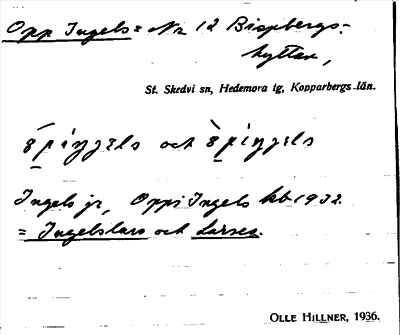 Opp Ingels = Nr 12 Bispbergs-
hyttan,
St. Skedvi sn, Hedemora tg, Kopparbergs län.
och
Ingels jr, Opp i Ingels kb 1932.
= Ingelslars och Larses.
OLLE HILLNER, 1936.